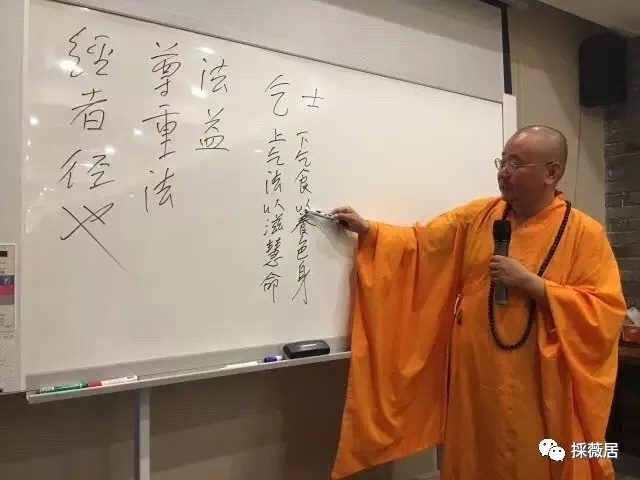 乞士
下乞食以養色身
上乞法以滋慧命
法益
尊重法
經者径也
採薇居